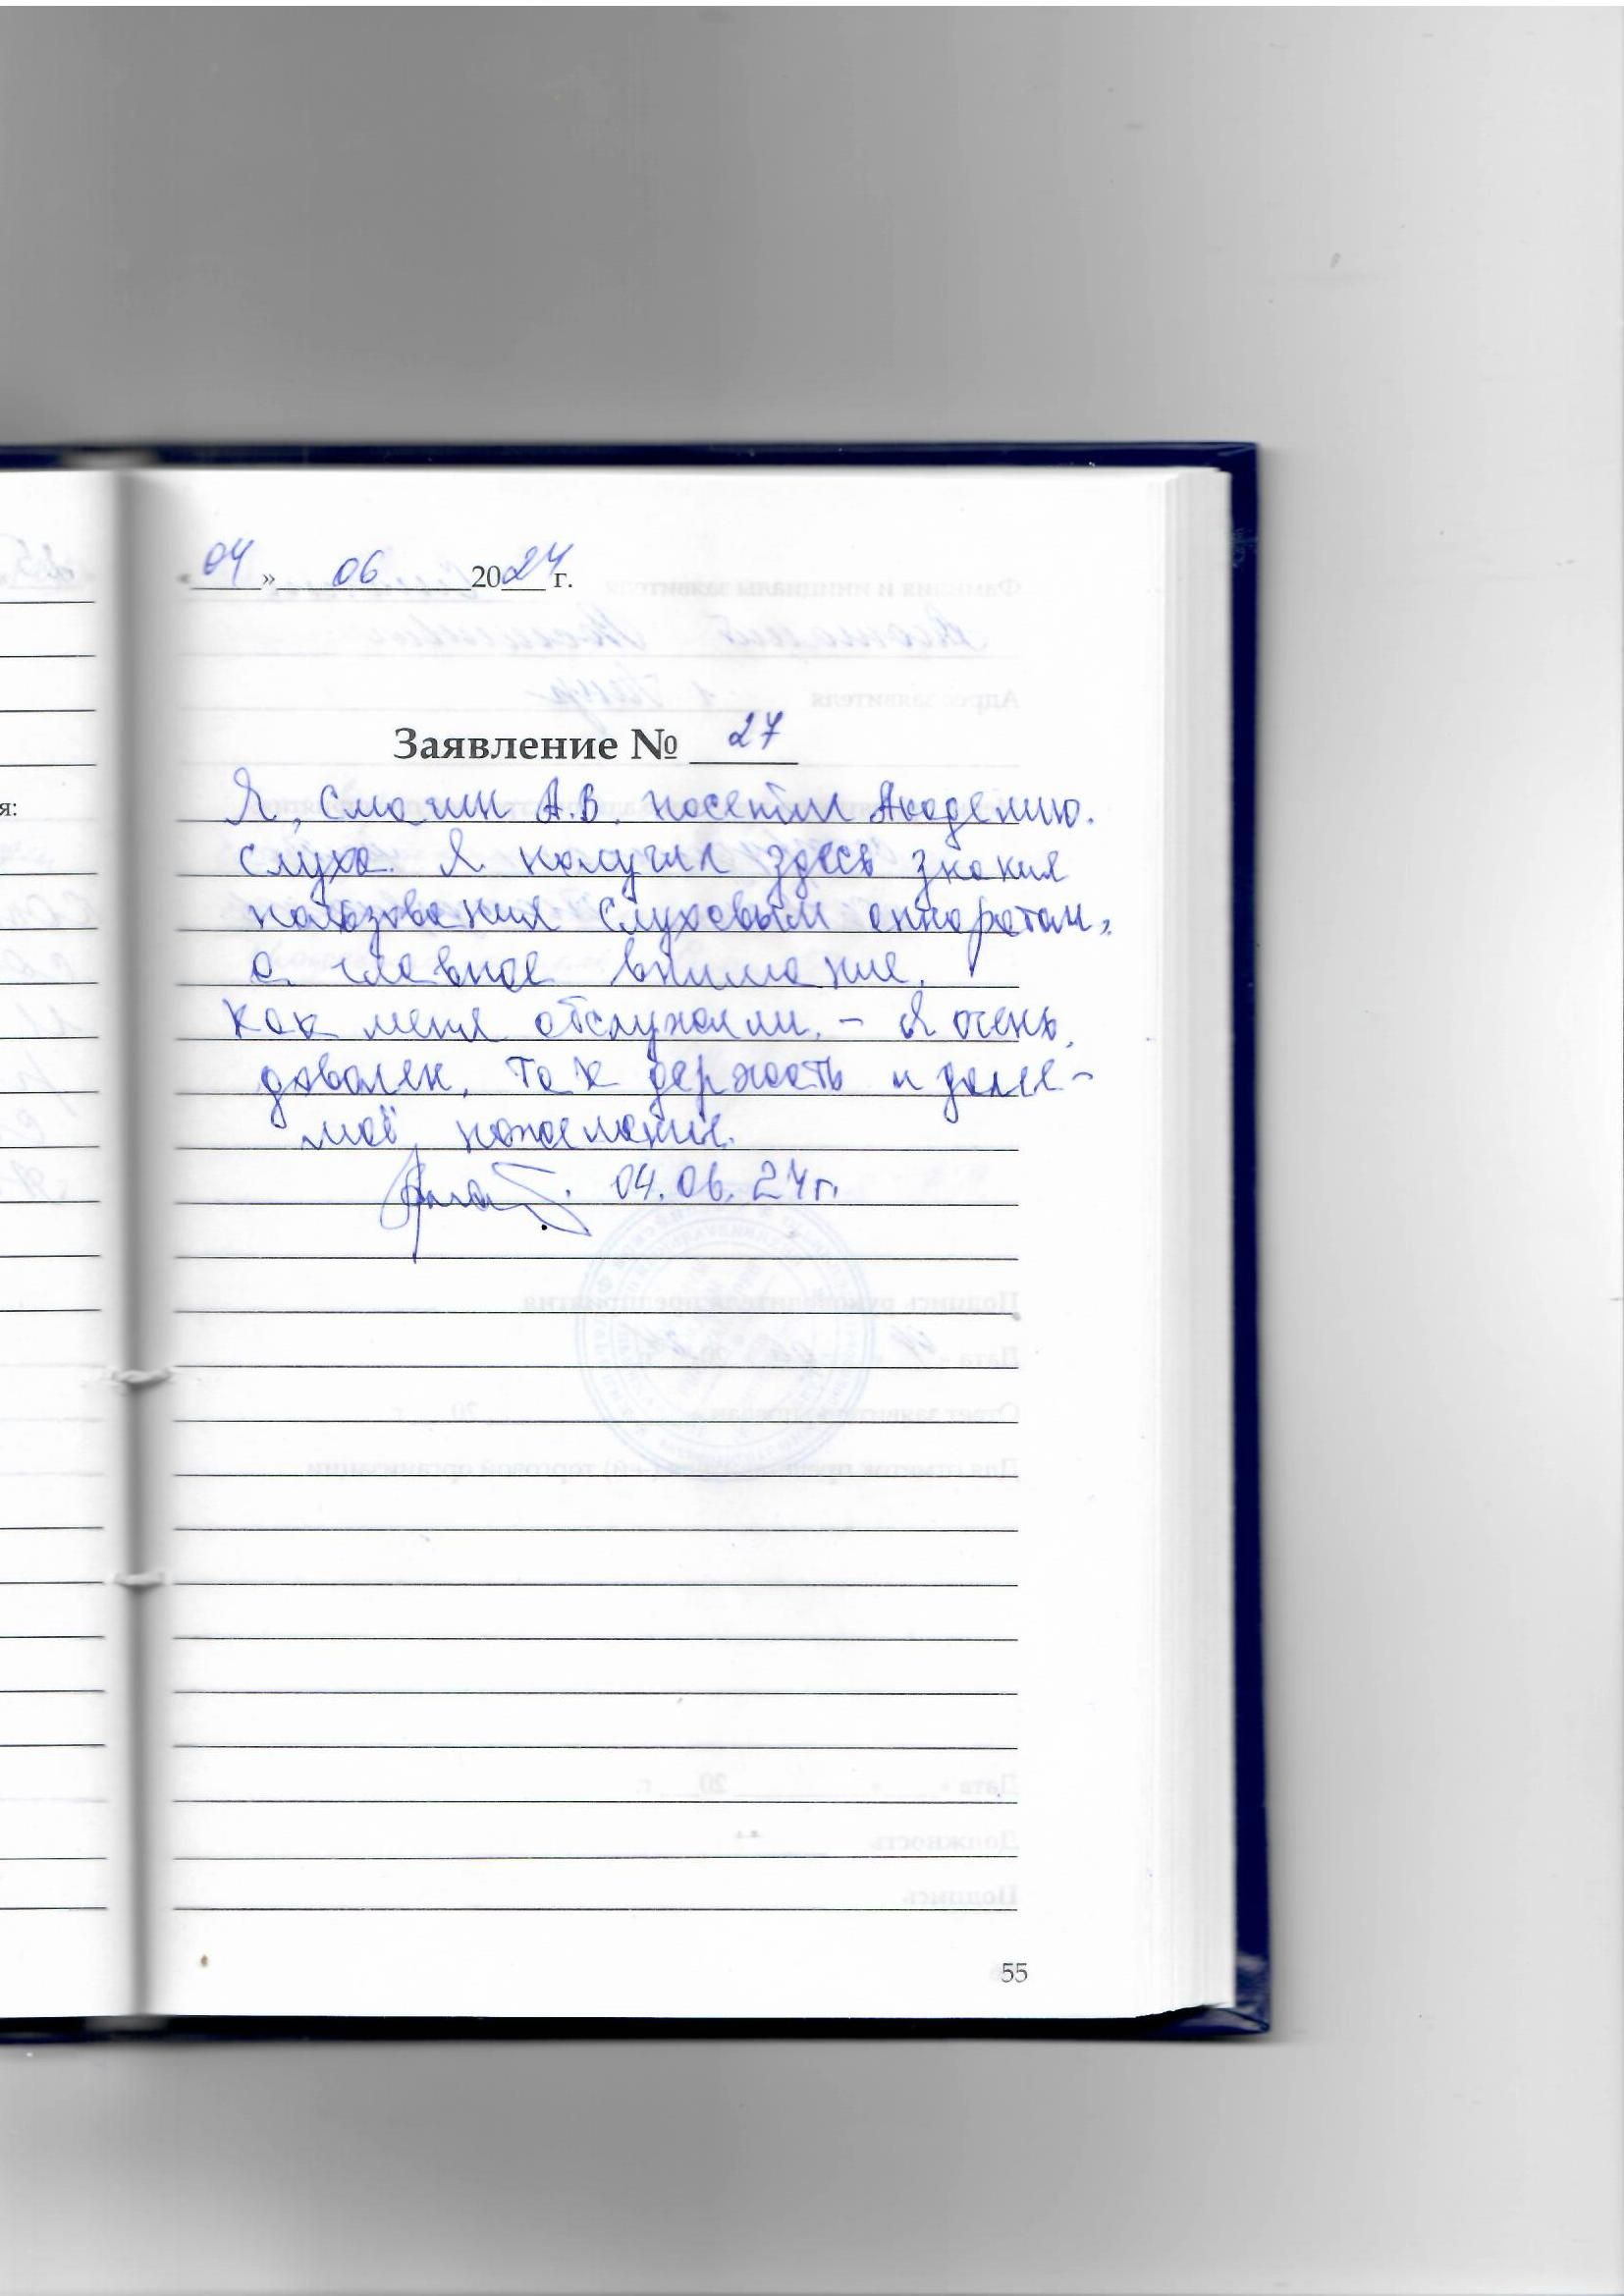 «04» 06 2024 г.
Заявление № 27
Я, Смагин А.В. посетил Академию.
слуха. Я получил здесь знания
пользования слуховым аппаратом,
а главное внимание.
Как меня обслужили. – Я очень
доволен, так держать и далее –
моё пожелание.
04.06.24г.
я:
55